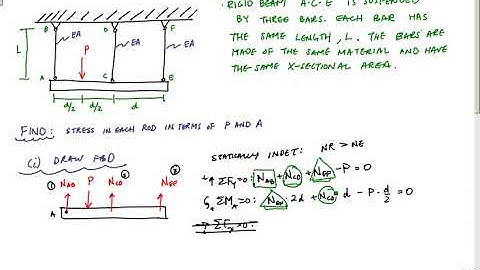 • RIGID BEAM A-C-E IS SUSPENDED
BY THREE BARS. EACH BAR HAS
THE SAME LENGTH, L. THE BARS ARE
MADE OF THE SAME MATERIAL AND HAVE
THE SAME X-SECTIONAL AREA.
B D F
EA EA EA
L P
A C E
d/2 d/2 d
FIND: STRESS IN EACH ROD IN TERMS OF P AND A
(i) DRAW FBD
STATICALLY INDET: NR > NE
① N_AB P N_CD ② N_EF ③
A
+↑ ΣF_y=0: N_AB + N_CD + N_EF - P = 0
ΣM_A=0: N_EF · 2d + N_CD · d - P · d/2 = 0
ΣF_x=0: